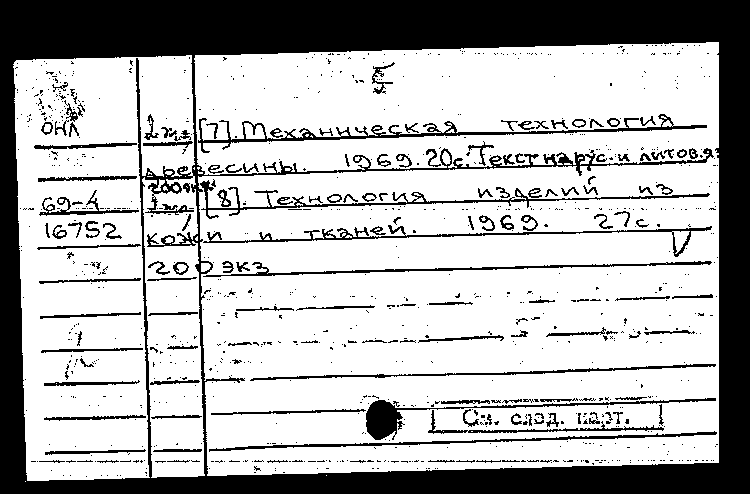 5
ОНЛ 2 экз. [7]. Механическая технология
древесины. 1969. 20с. Текст на рус. и литов.яз
200экз
69-4 1экз. [8]. Технология изделий из
16752 кожи и тканей. 1969. 27с.
200экз
См. след. карт.